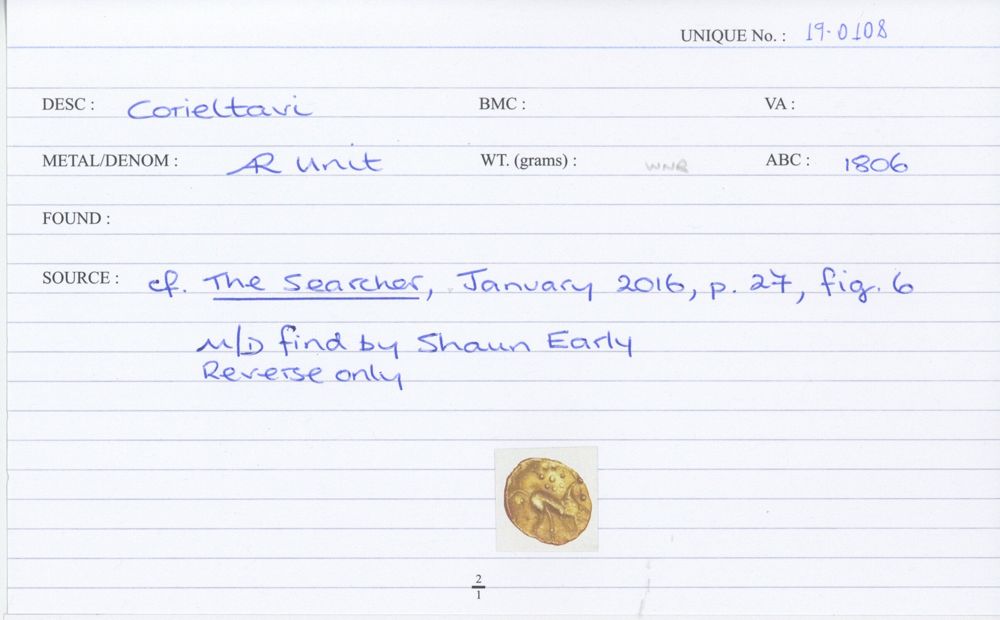 UNIQUE No. : 19-0108
DESC : Corieltavi BMC : VA :
METAL/DENOM : AR Unit WT. (grams) : WNR ABC : 1806
FOUND :
SOURCE : cf. The Searcher, January 2016, p. 27, fig. 6
M/D find by Shaun Early
Reverse only
2
1